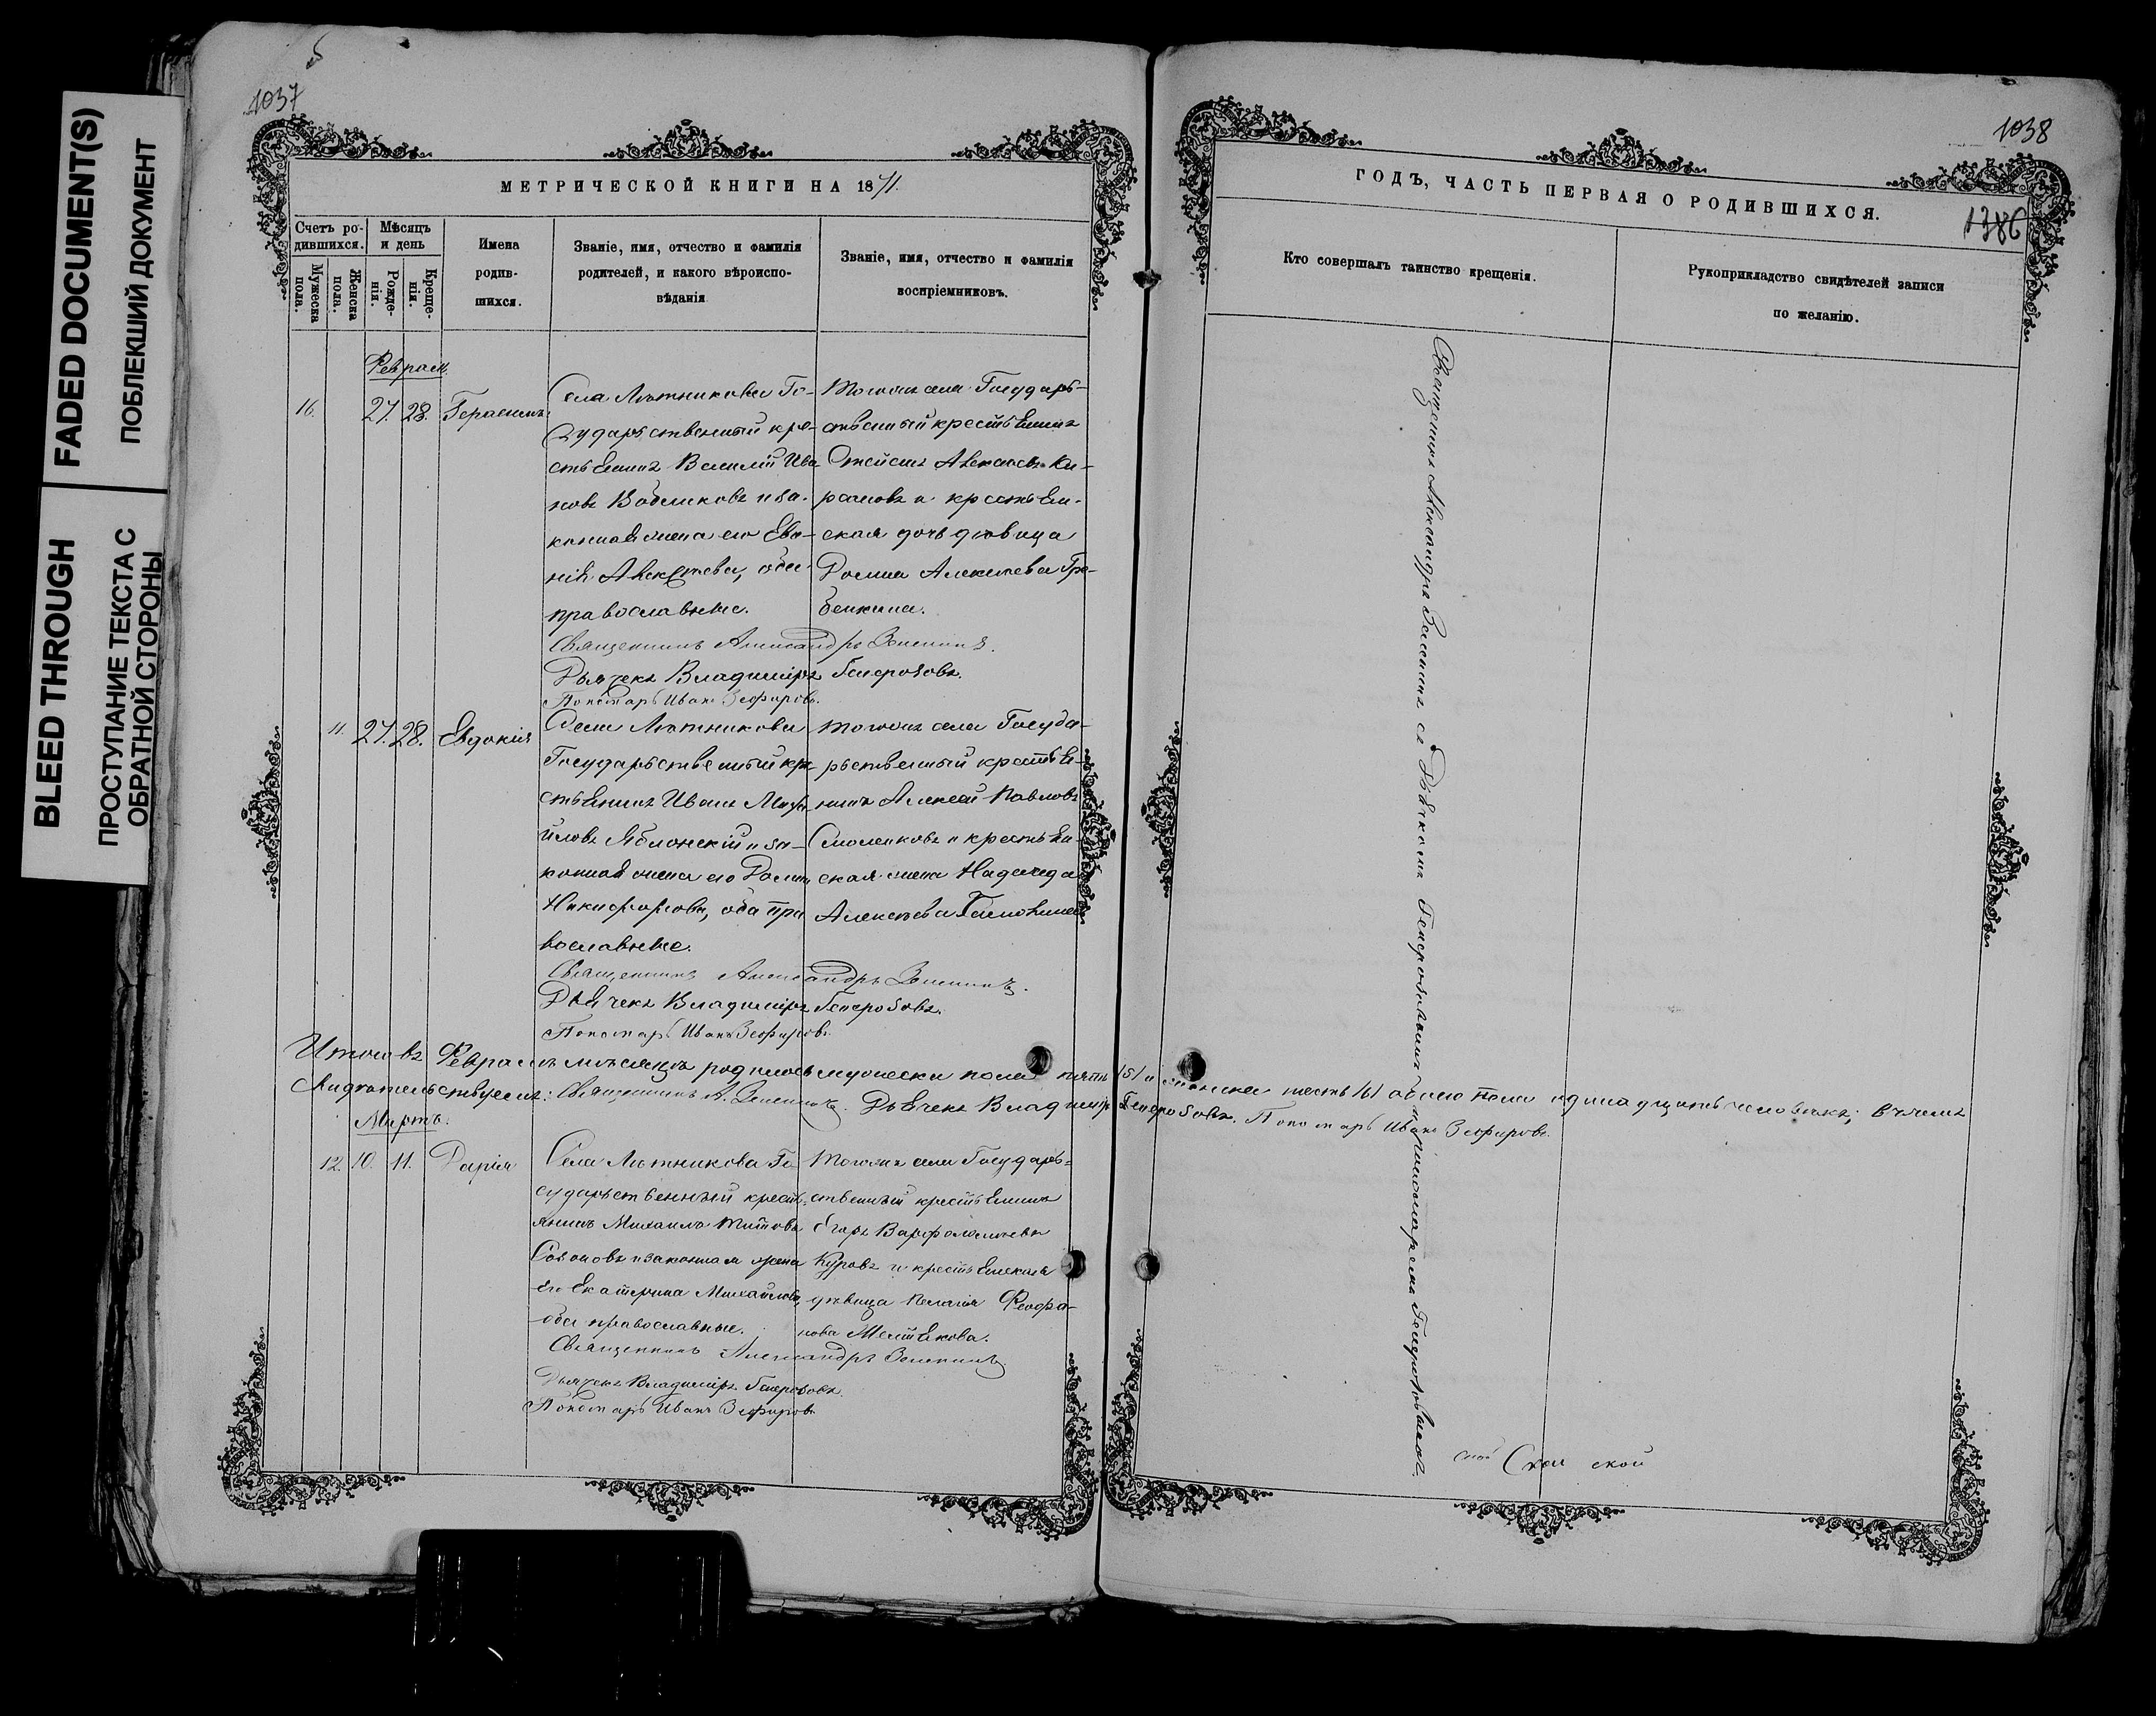 FADED DOCUMENT(S)
ПОБЛЕКШИЙ ДОКУМЕНТ
BLEED THROUGH
ПРОСТУПАНИЕ ТЕКСТА С
ОБРАТНОЙ СТОРОНЫ
1037
МЕТРИЧЕСКОЙ КНИГИ НА 1871.
Счетъ ро-
дившихся.
Мужеска
пола.
Женска
пола.
Мѣсяцъ
и день
Рожде-
нія.
Креще-
нія.
Имена
родив-
шихся.
Званіе, имя, отчество и фамилія
родителей, и какого вѣроиспо-
вѣданія
Званіе, имя, отчество и фамилія
воспріемниковъ.
Феврал.
16. 27. 28. Герасимъ
Села Лѣтникова Го-
сударственный кре-
стьянинъ Василій Ива
новъ и за-
конная жена его Евге-
нія Алексѣева, оба
православные.
Тогоже села Государ-
ственный крестьянинъ
Алексѣевъ Ки-
рсановъ и крестьян-
ская дочь дѣвица
Домна Алексѣева Гре-
бенкина.
Священникъ Александръ
Дьячекъ Владиміръ Генерозовъ.
Пономарь Иванъ Зефировъ.
11 27. 28. Евдокія
Села Лѣтникова
Государственный кре
стьянинъ Иванъ Миха
йловъ Яблонскій и за-
конная жена его Домна
Никифорова, оба пра
вославные.
Тогоже села Госуда-
рственный крестья-
нинъ Алексѣй Павловъ
Смоленковъ и крестьян-
ская жена Надежда
Алексѣева
Священникъ Александръ
Дьячекъ Владиміръ Генерозовъ.
Пономарь Иванъ Зефировъ.
Итого въ Февралѣ мѣсяцѣ родилось мужеска пола пять /5/ и женска шесть /6/ обоего пола одинадцать человѣкъ; въ чемъ
свидѣтельствуемъ: Священникъ А. Дьячекъ Владиміръ Генерозовъ. Пономарь Иванъ Зефировъ.
Мартъ.
12. 10. 11. Дарія
Села Лѣтникова Го
сударственный кресть-
янинъ Михаилъ Титовъ
и законная жена
его Екатерина Михайлова,
оба православные.
Тогоже села Государ-
ственный крестьянинъ
Егоръ Варфоломѣевъ
Куровъ и крестьянская
дѣвица Пелагія Феофа-
нова
Священникъ Александръ
Дьячекъ Владиміръ Генерозовъ.
Пономарь Иванъ Зефировъ.
1038
ГОДЪ, ЧАСТЬ ПЕРВАЯ О РОДИВШИХСЯ.
1386
Кто совершалъ таинство крещенія.
Рукоприкладство свидѣтелей записи
по желанію.
Священникъ Александръ съ Дьячкомъ
ской